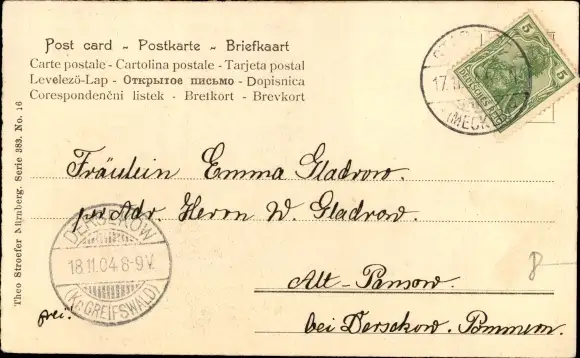 Post card - Postkarte - Briefkaart
Carte postale - Cartolina postale - Tarjeta postal
Levelező-Lap - Открытое письмо - Dopisnica
Corespondenční listek - Bretkort - Brevkort
Theo Stroefer Nürnberg. Serie 383. No. 16
5 5
DEUTSCHES REICH
17.11
(MECK
Fräulein Emma Gladrow.
per Adr. Herrn W. Gladrow.
DERSEKOW
18.11.04.8-9V.
(Kr. GREIFSWALD)
Alt-Pansow.
frei!
bei Dersekow. Pommern.